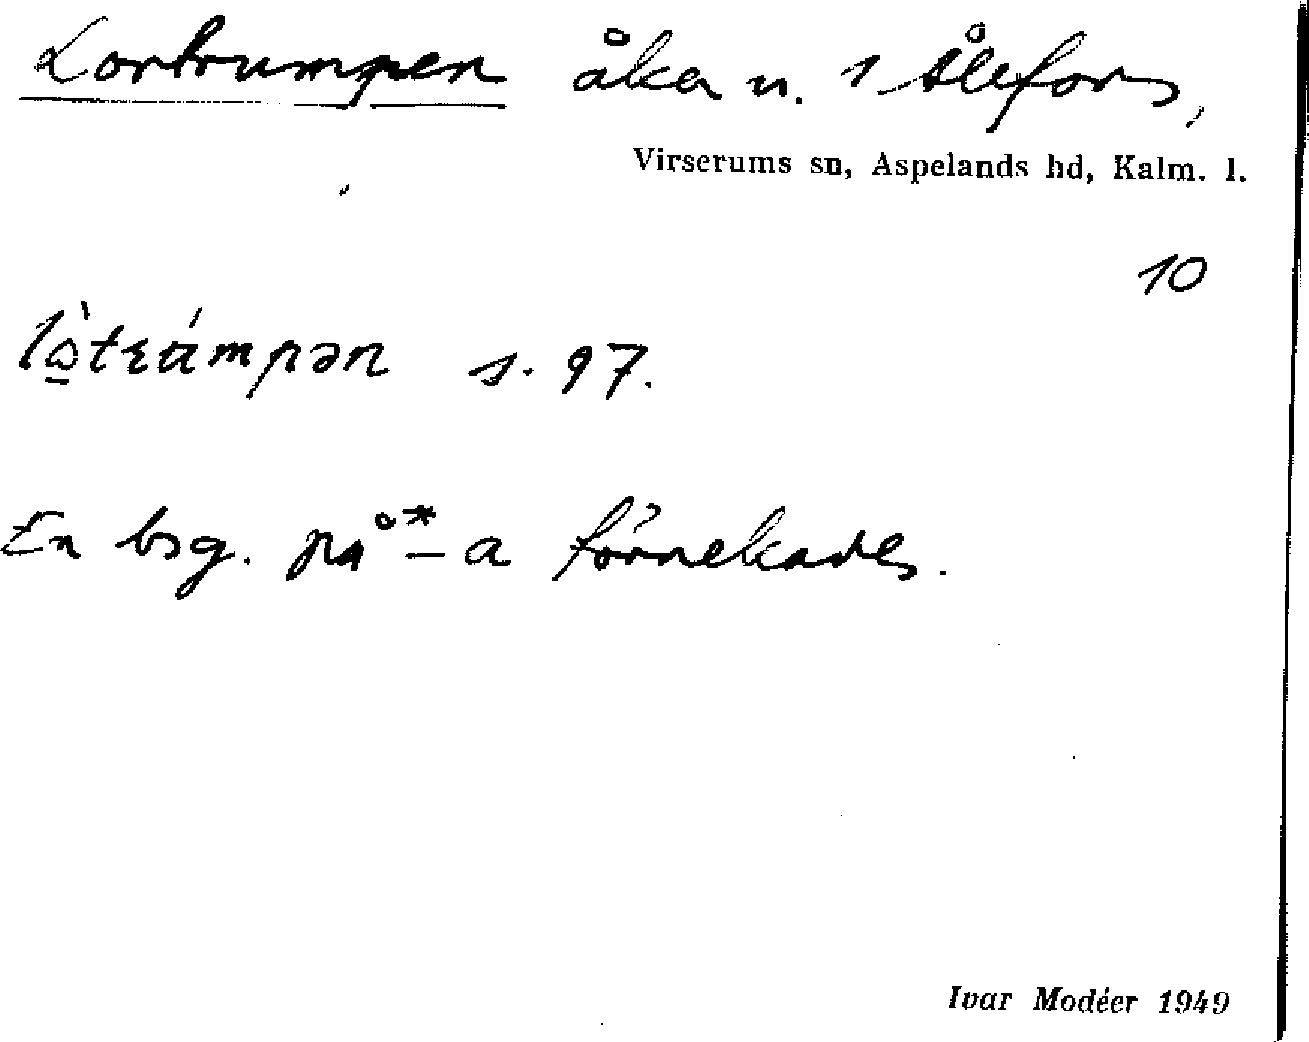 Lortrumpen åker n. 1 Ålefors,
Virserums sn, Aspelands hd, Kalm. l.
10
s. 97.
En bsg. på *-a förnekades.
Ivar Modéer 1949